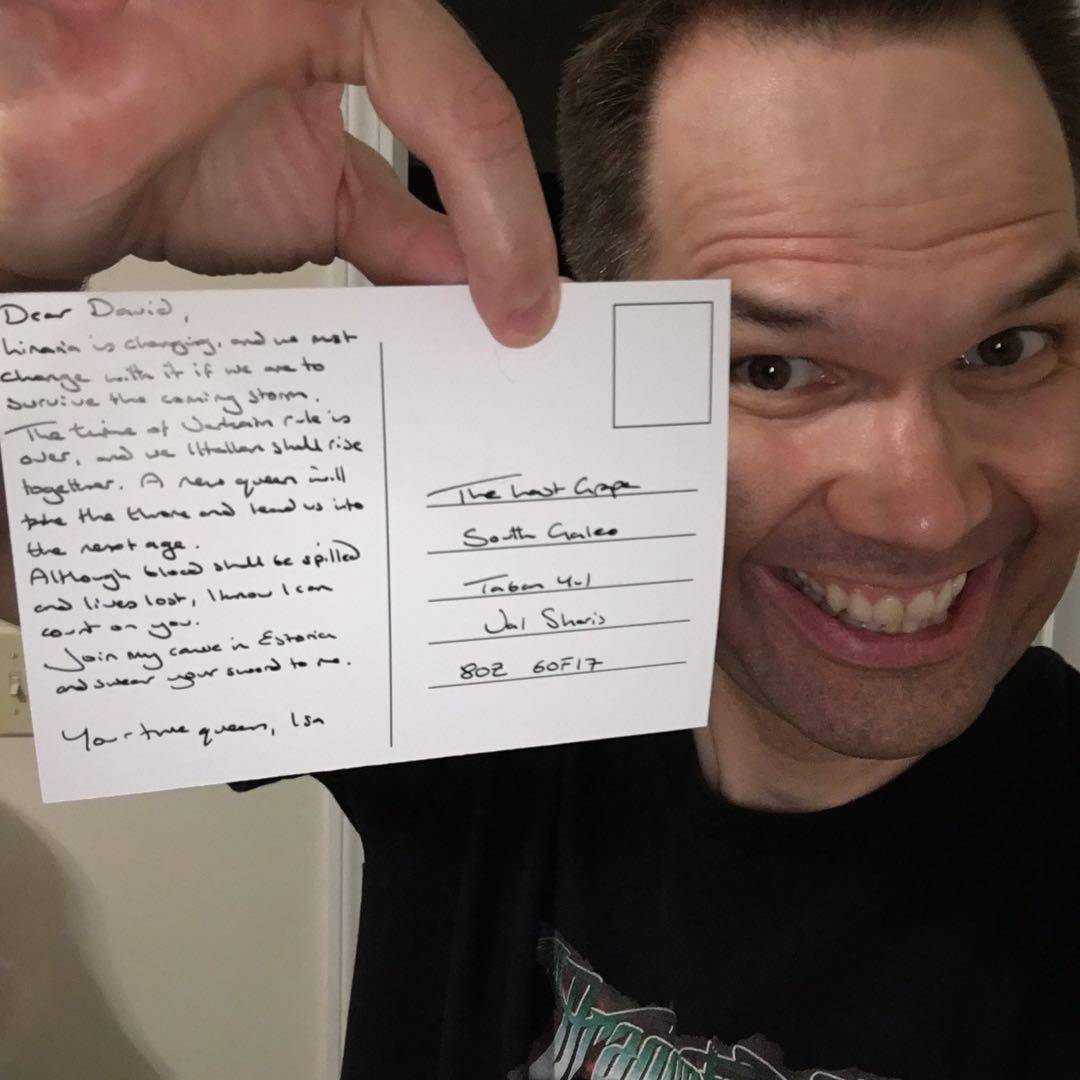 Dear David,
is changing, and we must
change with it if we are to
survive the coming storm.
The time of rule is
over, and we shall rise
together. A new queen will
take the throne and lead us into
the next age.
Although blood shall be spilled
and lives lost, I know I can
count on you.
Join my cause in Estonica
and swear your sword to me.
Your true queen, Isa
The Last Grape
South Galeo
Taban Yul
Jal Sharis
80Z 60F17